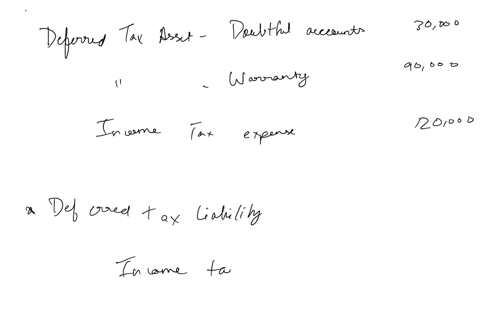 Deferred Tax Asset - Doubtful accounts 30,000
" - Warranty 90,000
Income Tax expense 120,000
* Deferred tax liability
Income ta